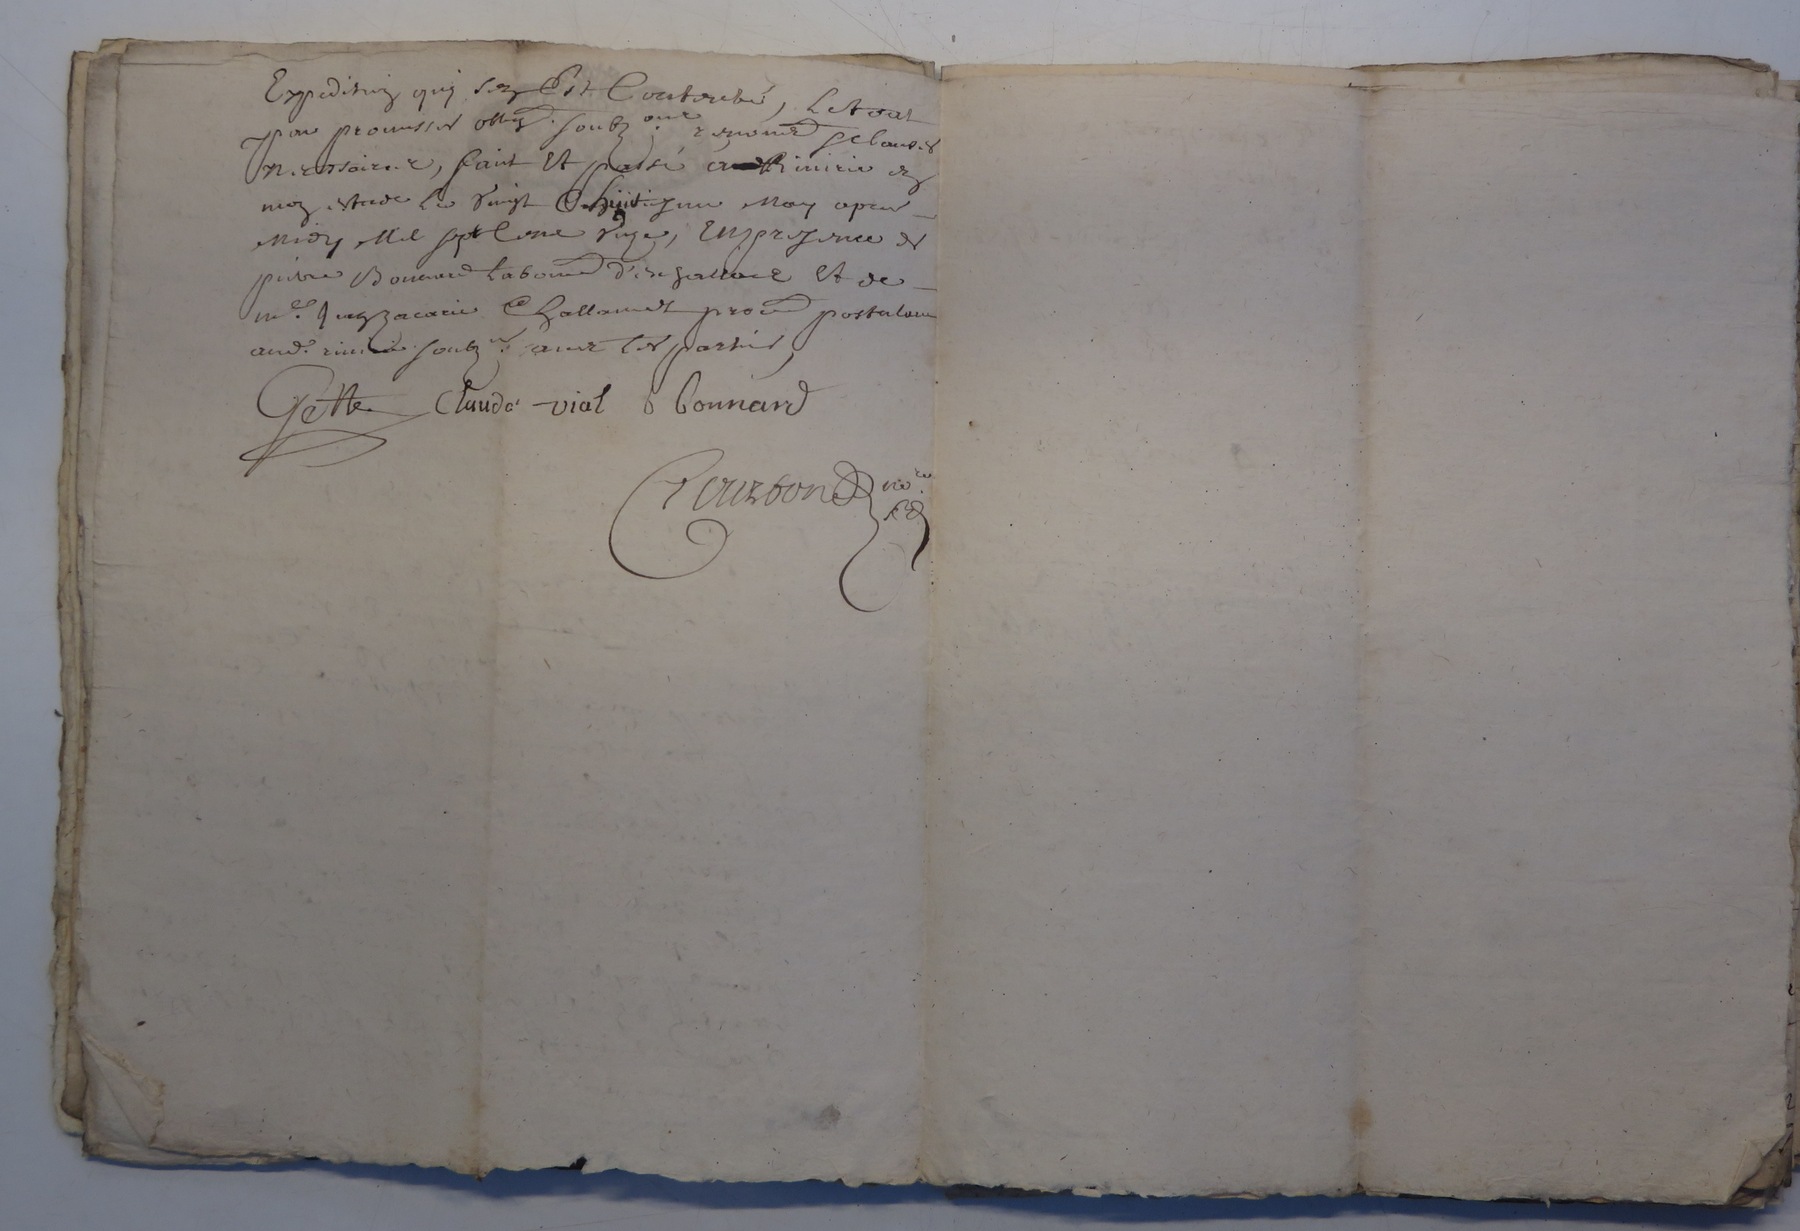 Expedition qui s'en est Contenté, Letout
par promesses oblig. soubz.on renonc clauses
necessaires, faict Et passé a Rivirie en
mon estude Le vingt huitiesme May apres
Midy Mil sept Cent Enpresence de
pierre Bonnard Laboureur Et de
me Zacarie Challamel procr postulant
aud. rivirie soubz.nes avec les parties,
Gette Claude vial b bonnard
Courbon nore